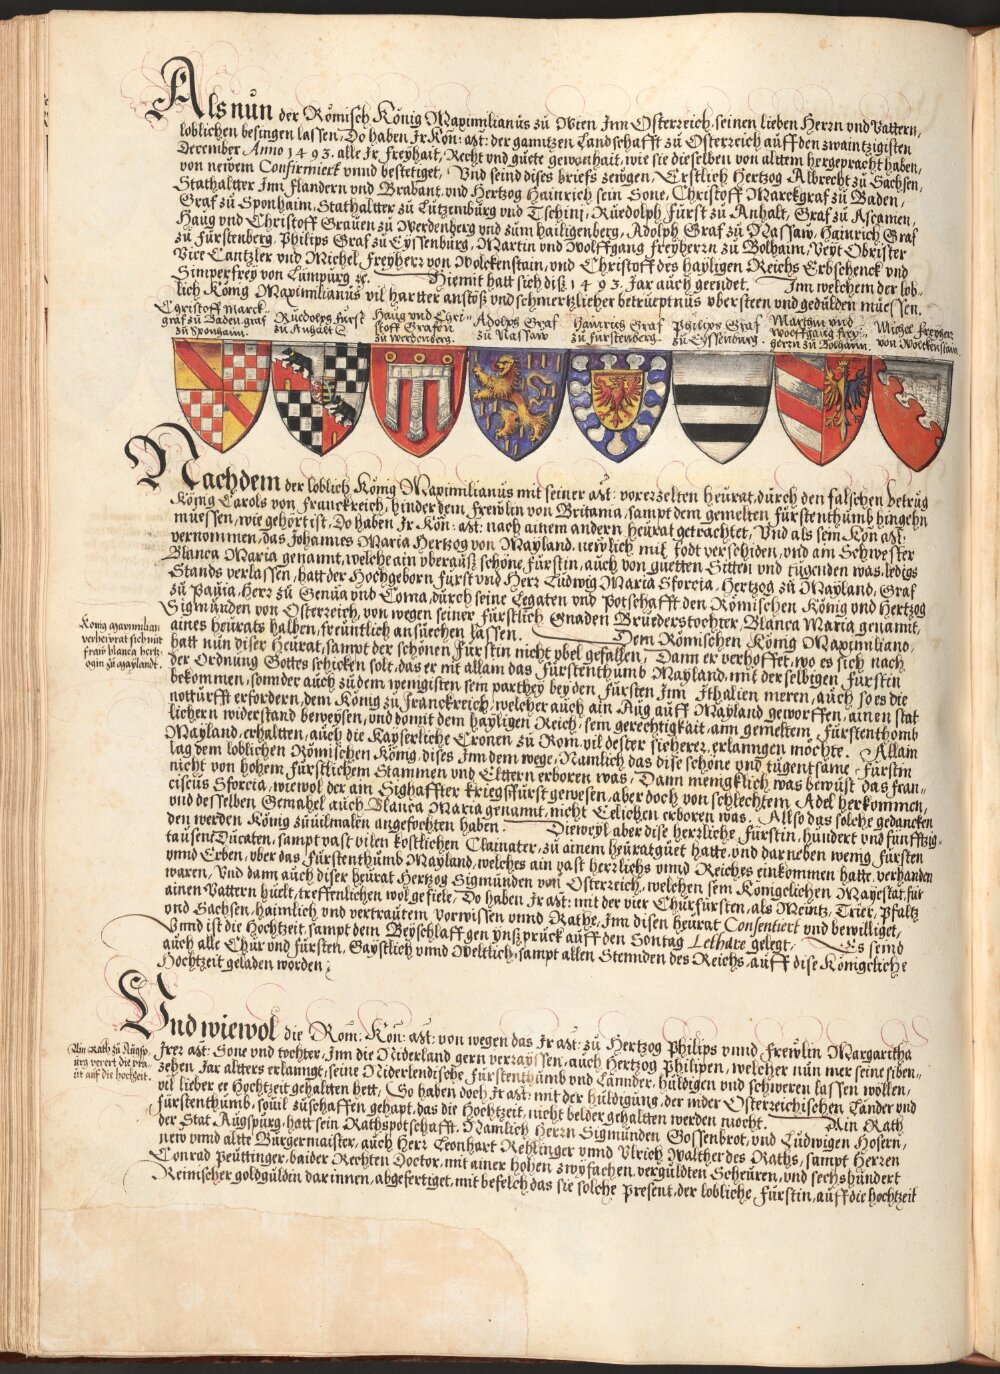 Als nun der Römisch König Maximilianus zu Wien Inn Osterreich, seinen lieben Herrn und Vattern,
loblichen besingen lassen, Do haben Ir Kön: Mt: der ganntzen Landschafft zu Osterreich auff den zwaintzigisten
December Anno 1493. alle Ir Freyhait, Recht und guete gewonhait, wie sie dieselben von alttem hergepracht haben,
von newem Confirmiert unnd bestetiget, Und seind dises briefs zewgen, Erstlich Hertzog Albrecht zu Sachsen,
Stathaltter Inn Flandern und Brabant, und Hertzog Hainrich sein Sone, Christoff Marckgraf zu Baden,
Graf zu Sponhaim, Stathaltter zu Lützemburg und Tschini, Rüedolph Fürst zu Anhalt, Graf zu Ascanien,
Haug und Christoff Grauen zu Werdenberg und zum hailigenberg, Adolph Graf zu Nassaw, Hainrich Graf
zu Fürstenberg, Philips Graf zu Eyssenburg, Martin und Wolffgang Freyherrn zu Bolhaim, Veyt Obrister
Vice Cantzler und Michel Freyherr von Wolckenstain, und Christoff des hayligen Reichs Erbschenck und
Simperfrey von Limpurg etc. Hiemit hatt sich diß 1493. Jar auch geendet. Inn welchem der lob-
lich König Maximilianus vil hartter anstöß und schmertzlicher betrueptnus ubersteen und gedulden muessen.
Christoff Marck
graf zu Baden graf
zu Sponhaim.
Ruedolph Fürst
zu Anhalt
Haug und Christ-
stoff Grafen
zu Werdenberg.
Adolph Graf
zu Nassaw
Hainrich Graf
zu Fürstenberg.
Philips Graf
zu Eyssenburg.
Martin und
Wolffgang frey-
herrn zu Bolhaim.
Michel Freyherr
von Wolckenstain.
Nachdem der loblich König Maximilianus mit seiner Mt: vorerzelten heurat, durch den falschen betrug
König Carols von Franckreich, hinder dem Frewlin von Britania, sampt dem gemelten Fürstenthumb hingehn
müessen, wie gehört ist, Do haben Ir Kön: Mt: nach ainem andern heurat getrachtet, Und als sein Kön Mt:
vernommen, das Johannes Maria Hertzog von Mayland, newlich mit todt verschiden, und ain Schwester
Blanca Maria genannt, welche ain uberauß schöne Fürstin, auch von guetten Sitten und tugenden was, ledigs
Stands verlassen, hatt der Hochgeborn Fürst und Herr Ludwig Maria Sforcia, Hertzog zu Mayland, Graf
zu Pauia, Herr zu Genua und Coma, durch seine Legaten und Potschafft den Römischen König und Hertzog
Sigmunden von Osterreich, von wegen seiner Fürstlich Gnaden Bruederstochter, Blanca Maria genannt,
aines heurats halben, freuntlich ansuechen lassen. Dem Römischen König Maximiliano,
hatt nun diser Heurat, sampt der schönen Fürstin nicht ybel gefallen, Dann er verhoffet, wo es sich nach
der Ordnung Gottes schicken solt, das er nit allain das Fürstenthumb Mayland, mit der selbigen Fürstin
bekommen, sonnder auch zu dem wenigisten sein parthey bey den Fürsten Inn Ithalien meren, auch so es die
notturfft erfordern, dem König zu Franckreich, welcher auch ain Aug auff Mayland geworffen, ainen stat
lichern widerstand beweysen, und donnit dem hayligen Reich, sein gerechtigkait, ann gemeltem Fürstenthomb
Mayland, erhaltten, auch die Kayserliche Cronen zu Rom, vil dester sicherer, erlanngen möchte. Allain
lag dem loblichen Römischen König, dises Inn dem wege, Namlich das dise schöne und tugentsame Fürstin
nicht von hohem Fürstlichem Stammen und Elttern erboren was, Dann menigklich was bewüst das Fran-
ciscus Sforcia, wiewol der ain Sighaffter kriegsfürst gewesen, aber doch von schlechtem Adel herkommen,
und desselben Gemahel auch Blanca Maria genannt, nicht Eelichen erboren was. Allso das solche gedancken
den werden König zu vilmalen angefochten haben. Diewéyl aber dise herzliche Fürstin, hundert und fünfftzig-
tausent Ducaten, sampt vast vilen kostlichen Clainater, zu ainem heuratguet hatte, und darneben wenig Fürsten
unnd Erben, uber das Fürstenthumb Mayland, welches ain vast herrlichs unnd Reiches einkommen hatte, verhanden
waren, Und dann auch diser heurat Hertzog Sigmunden von Osterreich, welchen sein Königclichen Mayestat, für
ainen Vattern hüelt, treffenlichen wol gefiele, Do haben Ir Mt: mit der vier Churfürsten, als Meintz, Trier, Pfaltz
und Sachsen, haimlich und vertrautem vorwissen unnd Rathe, Inn disen heurat Consentiert und bewilliget,
Unnd ist die Hochzeit, sampt dem Beyschlaff gen ynßpruck auff den Sontag Lethare gelegt, Es seind
auch alle Chur und fürsten, Gaystlich unnd Weltlich, sampt allen Stennden des Reichs, auff dise Königcliche
Hochtzeit geladen worden,
König Maximilian
verheirat sich mit
fraw blanca hertz-
ogin zu Maylandt.
Und wiewol die Röm: Kön: Mt: von wegen das Ir Mt: zu Hertzog Philips unnd Frewlin Margaritha
Irer Mt: Sone und tochter, Inn die Niderland gern verrayssen, auch Hertzog Philipen, welcher nun mer seine siben-
zehen Jar altters erlanngt, seine Niderlendische Fürstenthumb und Lannder, huldigen und schweren lassen wöllen,
vil lieber er Hochtzeit gehaltten hett, So haben doch Ir Mt: mit der huldigung, der nider Osterreichischen Länder und
Fürstenthumb, souil zuschaffen gehapt, das die Hochtzeit, nicht belder gehaltten werden mocht. Ain Rath
der Stat Augspurg, hatt sein Rathspotschafft, Namlich Herrn Sigmunden Gossenbrot, und Ludwigen Hosern,
new unnd altte Burgermaister, auch Herr Leonhart Rehlinger unnd Ulrich Walther des Raths, sampt Herren
Conrad Peuttinger, baider Rechten Doctor, mit ainer hohen zwyfachen, vergüldten Scheuren, und sechshundert
Reinischer goldguldin darinnen, abgefertiget, mit befelch das sie solche Present, der lobliche Fürstin, auff die hochtzeit
Ain Rath zu Augsp-
urg verert die bra-
ut auf die hochzeit.